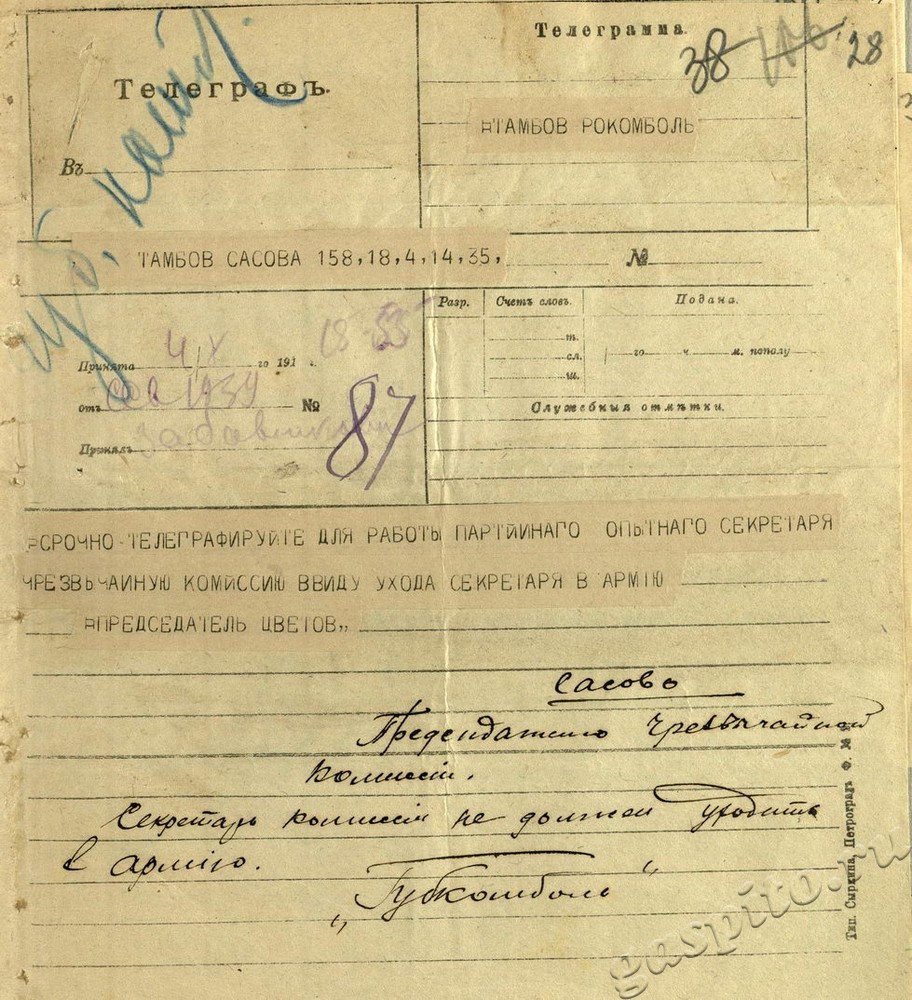 Телеграмма.
38 106 28
Телеграфъ.
¤ТАМБОВ РОКОМБОЛЬ
Въ
ТАМБОВ САСОВА 158,18,4,14,35,
№
Разр. Счетъ словъ. Подана.
т.
го ч. м. пополу
сл.
ш.
Принята 4/X го 191 г. 18-55
отъ № 87
Служебныя отмѣтки.
Принялъ
¤СРОЧНО ТЕЛЕГРАФИРУЙТЕ ДЛЯ РАБОТЫ ПАРТІЙНАГО ОПЫТНАГО СЕКРЕТАРЯ
ЧРЕЗВЫЧАЙНУЮ КОМИССИЮ ВВИДУ УХОДА СЕКРЕТАРЯ В АРМІЮ
¤ПРЕДСЕДАТЕЛЬ ЦВЕТОВ„
Сасово
Председателю Чрезвычайной
комиссіи.
Секретарь комиссіи не должен уходить
в армію.
„Губкомболь"
Тип. Сыркина, Петроградъ Ф. №
gaspito.ru